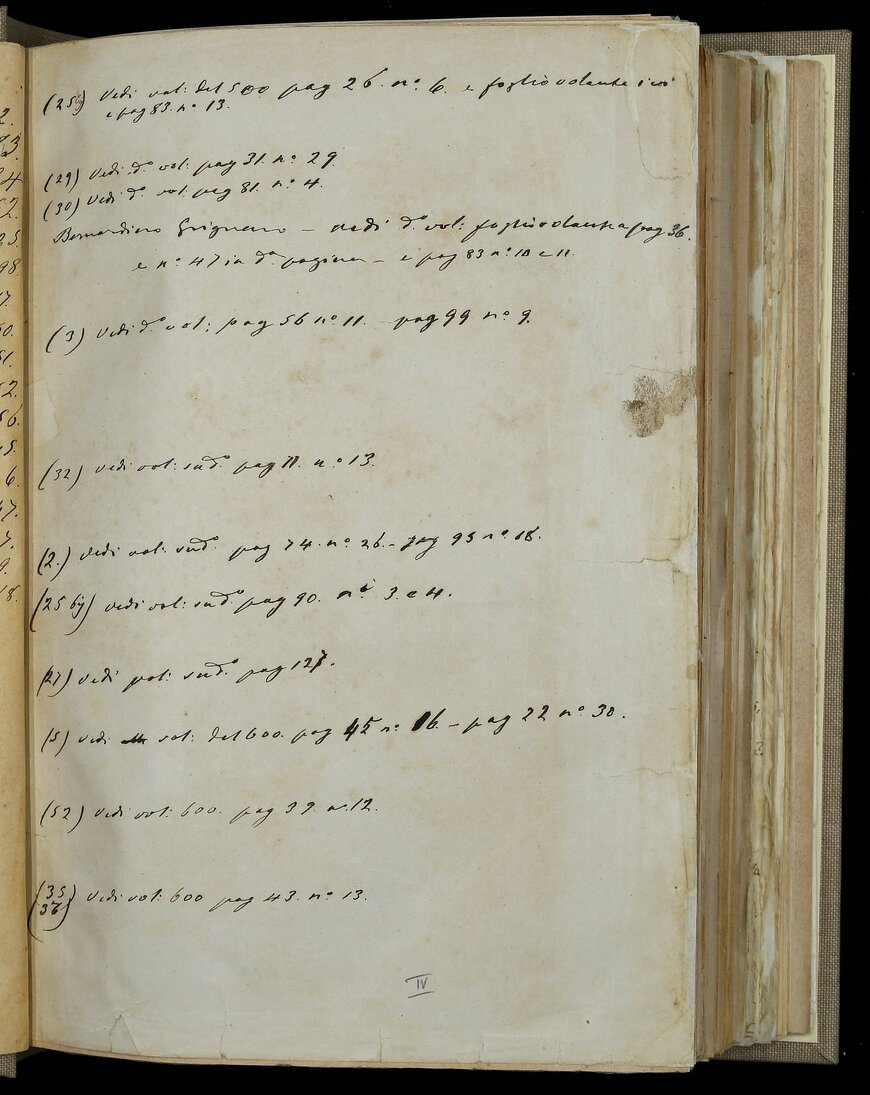 (25) Vedi vol: del 500 pag 26. nº. 6. e foglio volante ivi
e pag 83. nº 13.
(29) Vedi dº vol: pag 31. nº 29
(30) Vedi dº vol: pag 81. nº 4.
Bernardino – vedi dº vol: foglio volante a pag 36.
e nº 47 in dª pagina – e pag 83 nº 10 e 11.
(3) Vedi dº vol: pag 56 nº 11. pag 99 nº 9.
(32) Vedi vol: sudº pag 71. nº 13.
(2.) Vedi vol: sudº. pag 74. nº. 26 – pag 95 nº. 18.
(25 by) vedi vol: sudº. pag 90. nº 3. e 4.
(27) vedi vol: sudº pag 127.
(5) vedi vol: del 600. pag 45 nº 16. – pag 22 nº 30.
(52) vedi vol: 600. pag 39. nº. 12.
(35
36) Vedi vol: 600 pag 43. nº 13.
IV